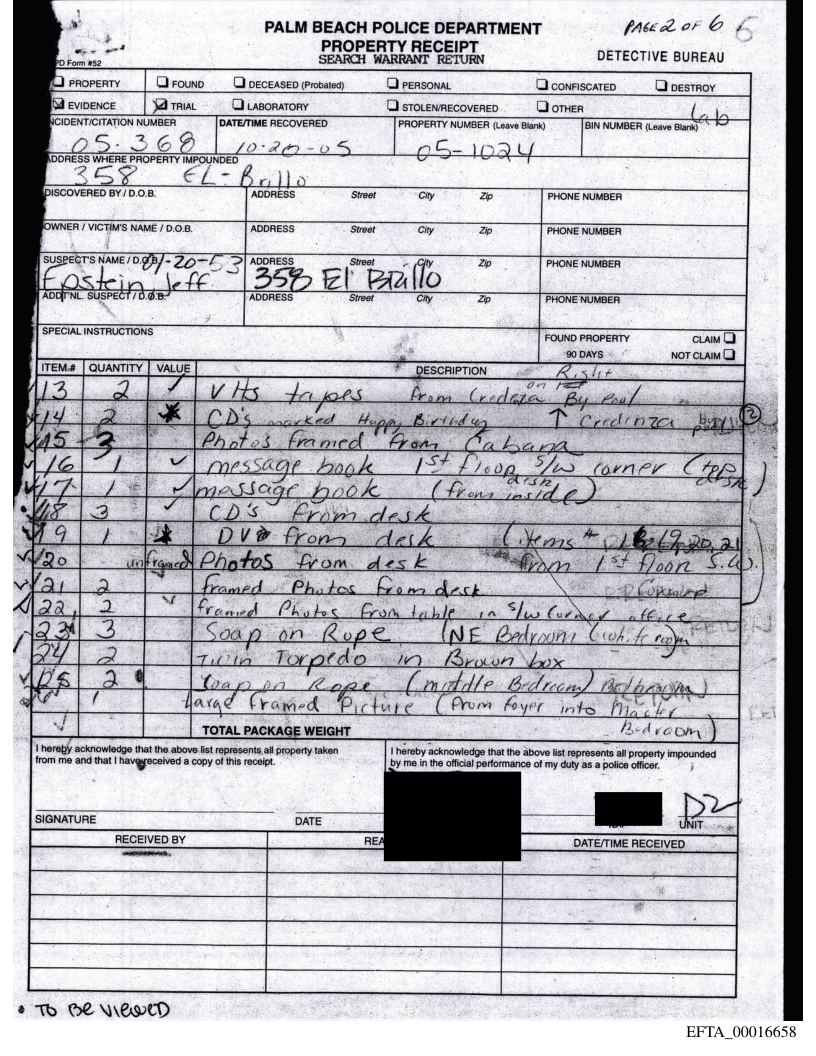 PALM BEACH POLICE DEPARTMENT
PAGE 2 OF 6 6
PROPERTY RECEIPT
SEARCH WARRANT RETURN
DETECTIVE BUREAU
PD Form #52
PROPERTY FOUND DECEASED (Probated) PERSONAL CONFISCATED DESTROY
EVIDENCE TRIAL LABORATORY STOLEN/RECOVERED OTHER
Lab
INCIDENT/CITATION NUMBER DATE/TIME RECOVERED PROPERTY NUMBER (Leave Blank) BIN NUMBER (Leave Blank)
05-368 10-20-05 05-1024
ADDRESS WHERE PROPERTY IMPOUNDED
358 EL-Brillo
DISCOVERED BY / D.O.B. ADDRESS Street City Zip PHONE NUMBER
OWNER / VICTIM'S NAME / D.O.B. ADDRESS Street City Zip PHONE NUMBER
SUSPECT'S NAME / D.O.B. 01-20-53 ADDRESS Street City Zip PHONE NUMBER
Epstein Jeff 358 El Brillo
ADDT'NL. SUSPECT / D.O.B. ADDRESS Street City Zip PHONE NUMBER
SPECIAL INSTRUCTIONS
FOUND PROPERTY CLAIM
90 DAYS NOT CLAIM
ITEM# QUANTITY VALUE DESCRIPTION
Right
13 2 VHs tapes from Credeza on By Pool
14 2 CD's marked Happy Birthday ↑ Credinza by pool 2
15 3 Photos framed from Cabana
16 1 message book 1st floor S/W corner (top desk)
17 1 message book (from inside desk)
18 3 CD's from desk
19 1 DVD from desk (items # 18, 19, 20, 21
20 unframed Photos from desk from 1st floor S.W.
21 2 framed Photos from desk
22 2 framed Photos from table in S/W Corner office
23 3 Soap on Rope (NE Bedroom) (white room
24 2 Twin Torpedo in Brown box
25 2 Soap on Rope (middle Bedroom) Bathroom)
1 Large framed Picture (from foyer into Master
Bedroom)
TOTAL PACKAGE WEIGHT
I hereby acknowledge that the above list represents all property taken
from me and that I have received a copy of this receipt.
I hereby acknowledge that the above list represents all property impounded
by me in the official performance of my duty as a police officer.
D2
SIGNATURE DATE UNIT
RECEIVED BY REA DATE/TIME RECEIVED
• TO BE VIEWED
EFTA_00016658